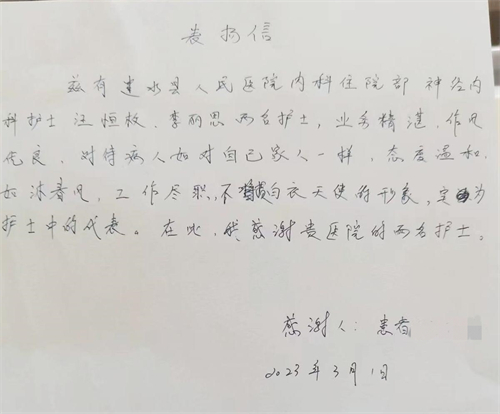 表扬信
兹有建水县人民医院内科住院部神经内
科护士汪恒枚、李丽思两名护士,业务精湛、作风
优良、对待病人如对自己家人一样,态度温和,
如沐春风,工作尽职,不愧白衣天使的形象,定为
护士中的代表。在此,我感谢贵医院的两名护士。
感谢人:患者
2023年3月1日